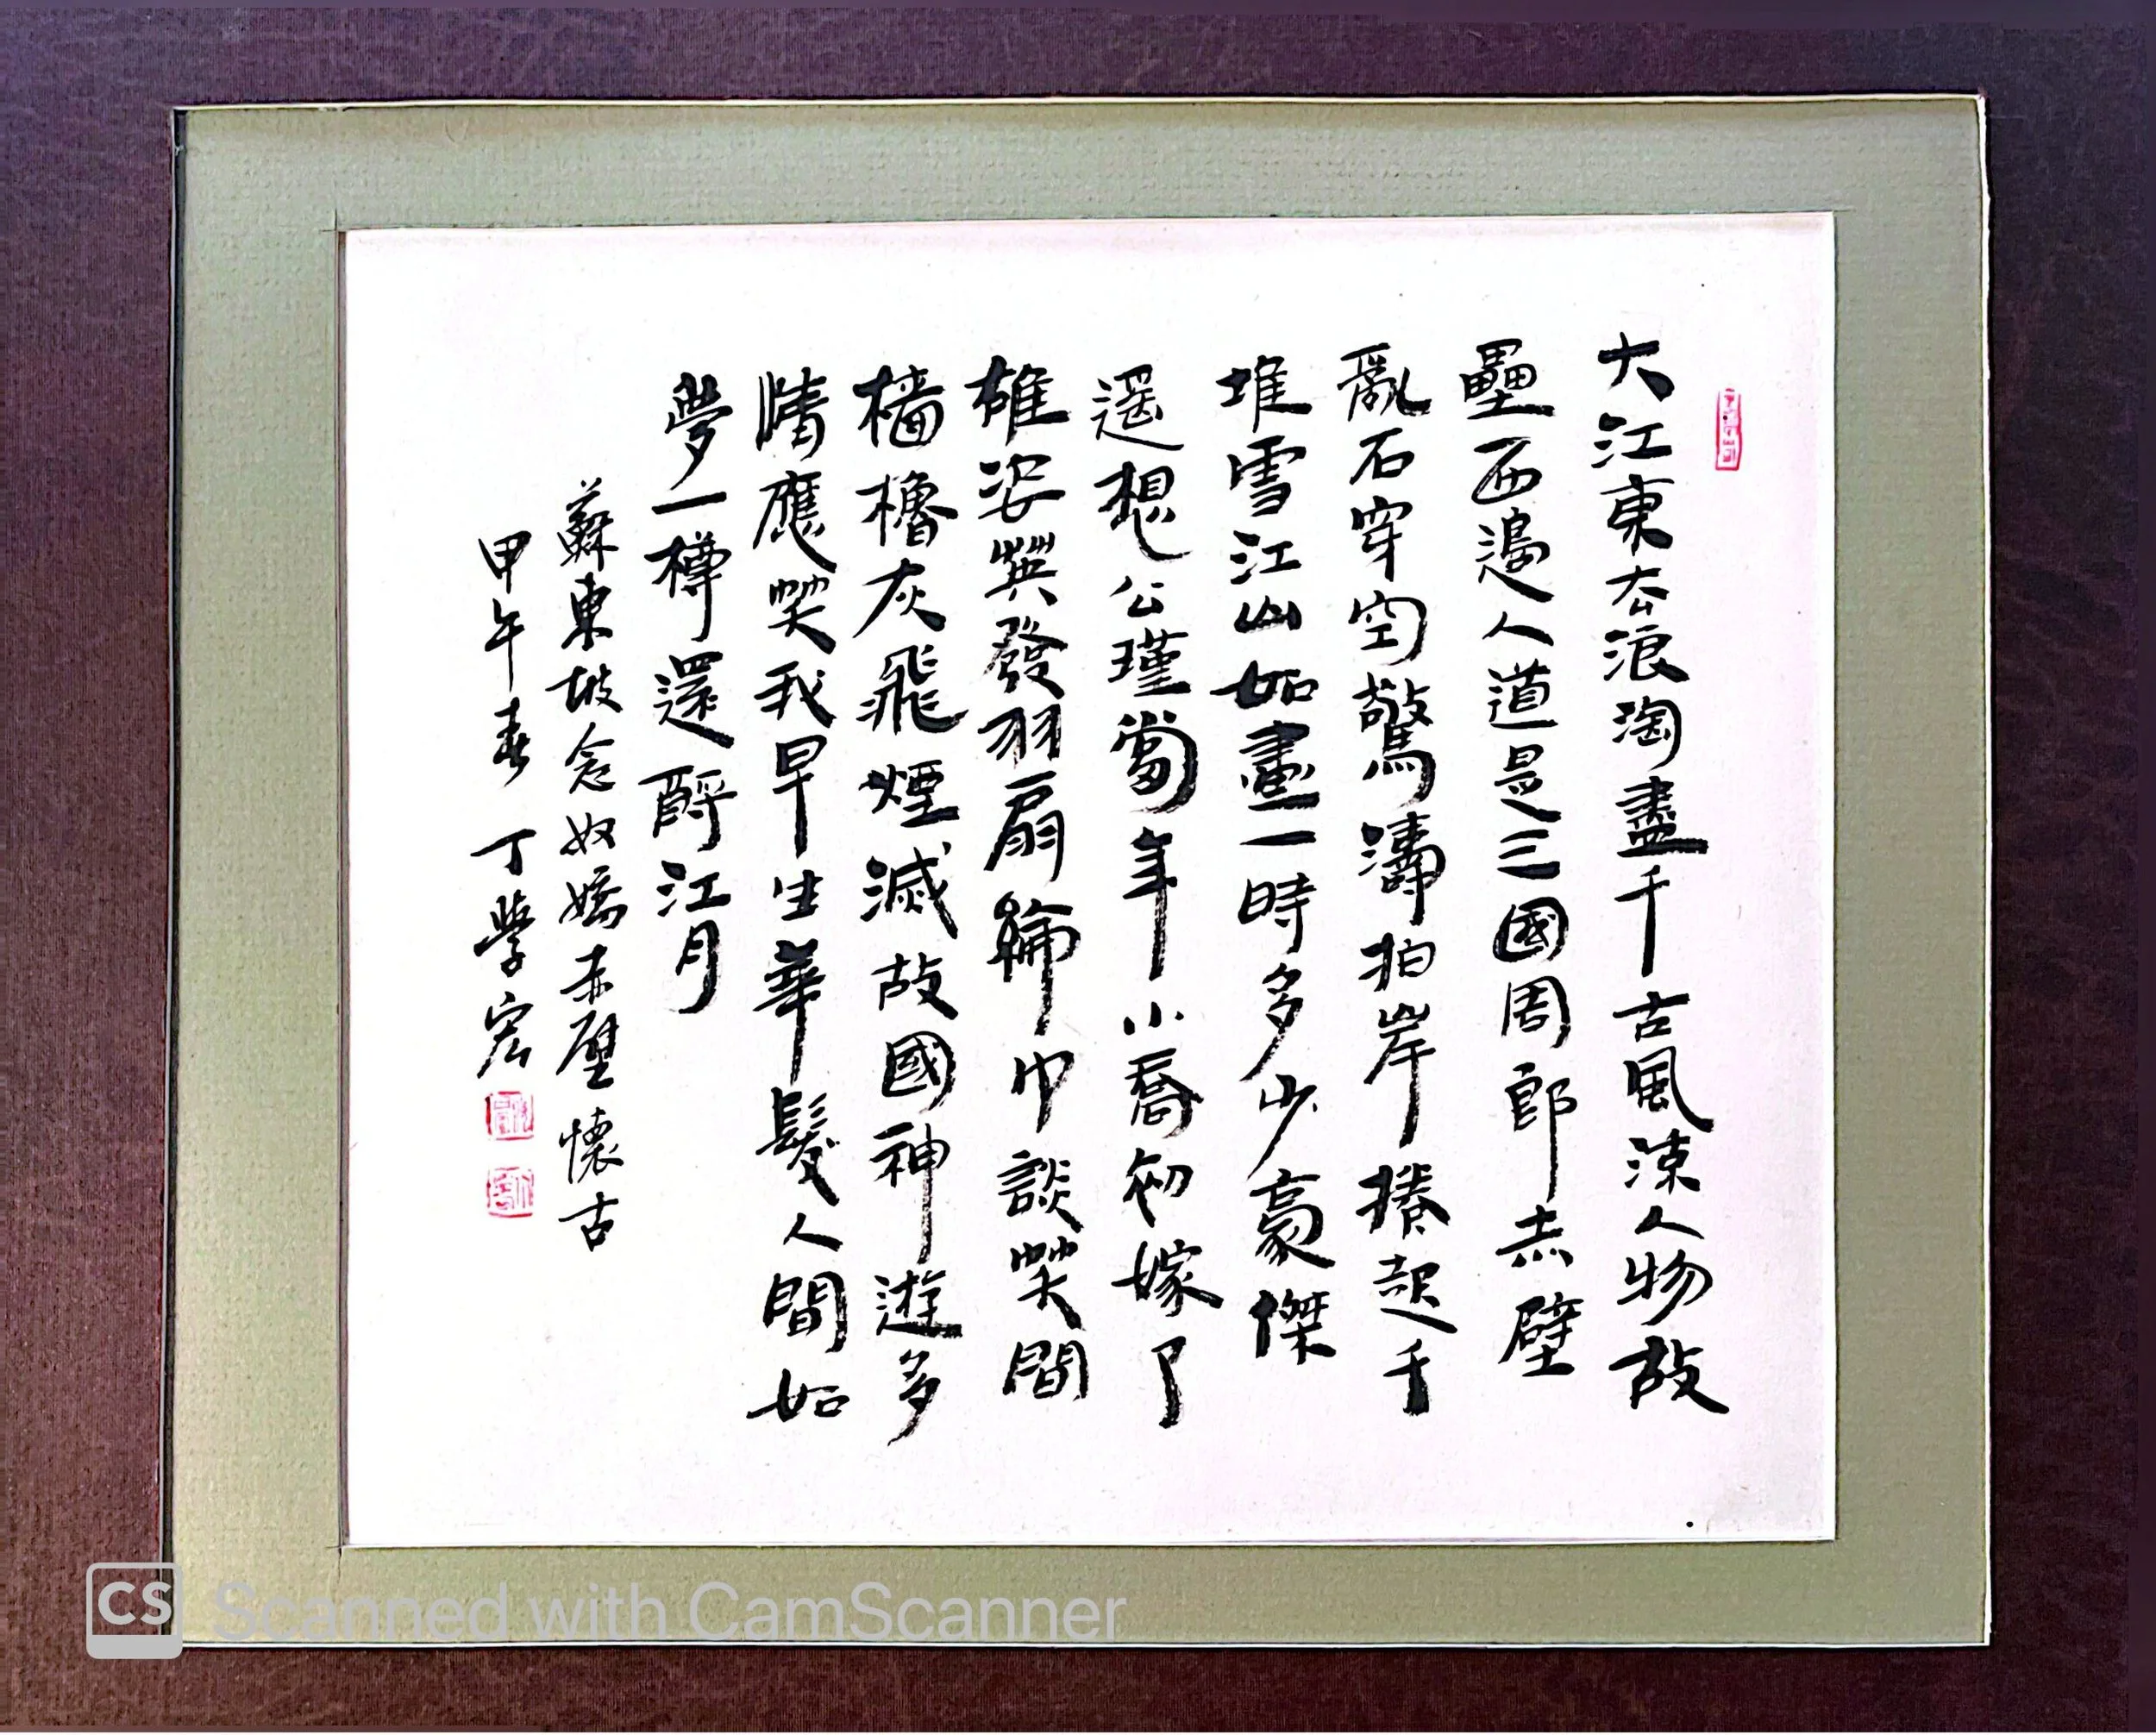 大江東去浪淘盡千古風流人物故
壘西邊人道是三國周郎赤壁
亂石穿空驚濤拍岸捲起千
堆雪江山如畫一時多少豪傑
遥想公瑾當年小喬初嫁了
雄姿英發羽扇綸巾談笑間
檣櫓灰飛煙滅故國神遊多
情應笑我早生華髮人間如
夢一樽還酹江月
蘇東坡念奴嬌赤壁懷古
甲午春 丁學宏
CS Scanned with CamScanner